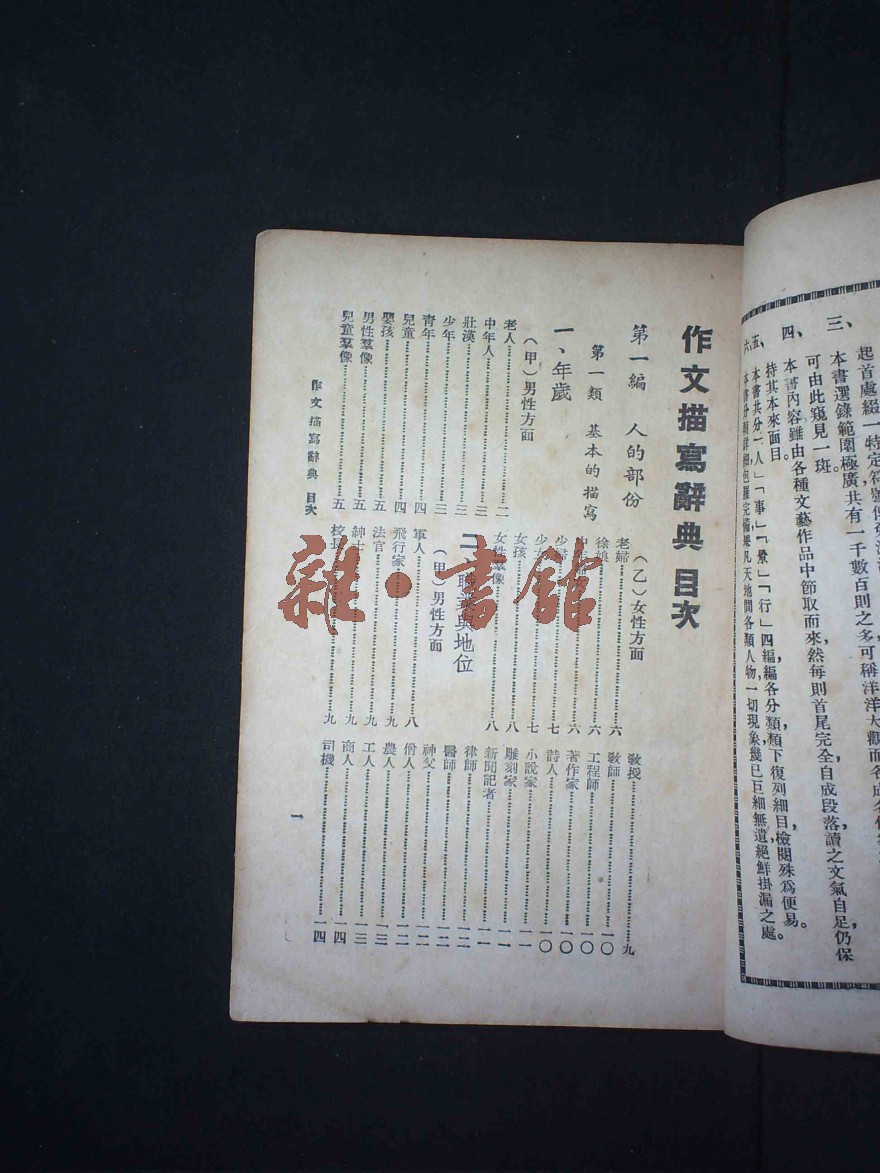 三、本書選錄範圍極廣共有一千數百則之多可稱洋洋大觀而各
可由此窺見一班。
四、本書內容雖由各種文藝作品中節取而來，然每則首尾完全自成段落，讀之文氣自足，仍保
持其本來面目。
五、本書共分「人」「事」「景」「行」四編，編各分類，類下復列細目，檢閱殊為便易。
六、本書分類詳細，包羅完備，舉凡天地間各類人物，一切現象，幾已巨細無遺，絕鮮掛漏之處。
作文描寫辭典 目次
第一編 人的部份
第一類 基本的描寫
一、年歲
（甲）男性方面
老人 二
中年人 三
壯漢 三
少年 三
青年 四
兒童 四
嬰孩 五
男性羣像 五
兒童羣像 五
（乙）女性方面
老婦 六
徐娘 六
六
少婦 七
少女 七
女孩 八
女性羣像 八
二、職業與地位
（甲）男性方面
軍人 八
飛行家 九
法官 九
紳士 九
校長 九
教授 九
教師 一〇
工程師 一〇
著作家 一〇
詩人 一〇
小說家 一一
雕刻家 一一
新聞記者 一一
律師 一二
醫師 一二
神父 一二
僧人 一二
農人 一三
工人 一三
商人 一四
司機 一四
作文描寫辭典 目次
一
雜·書館